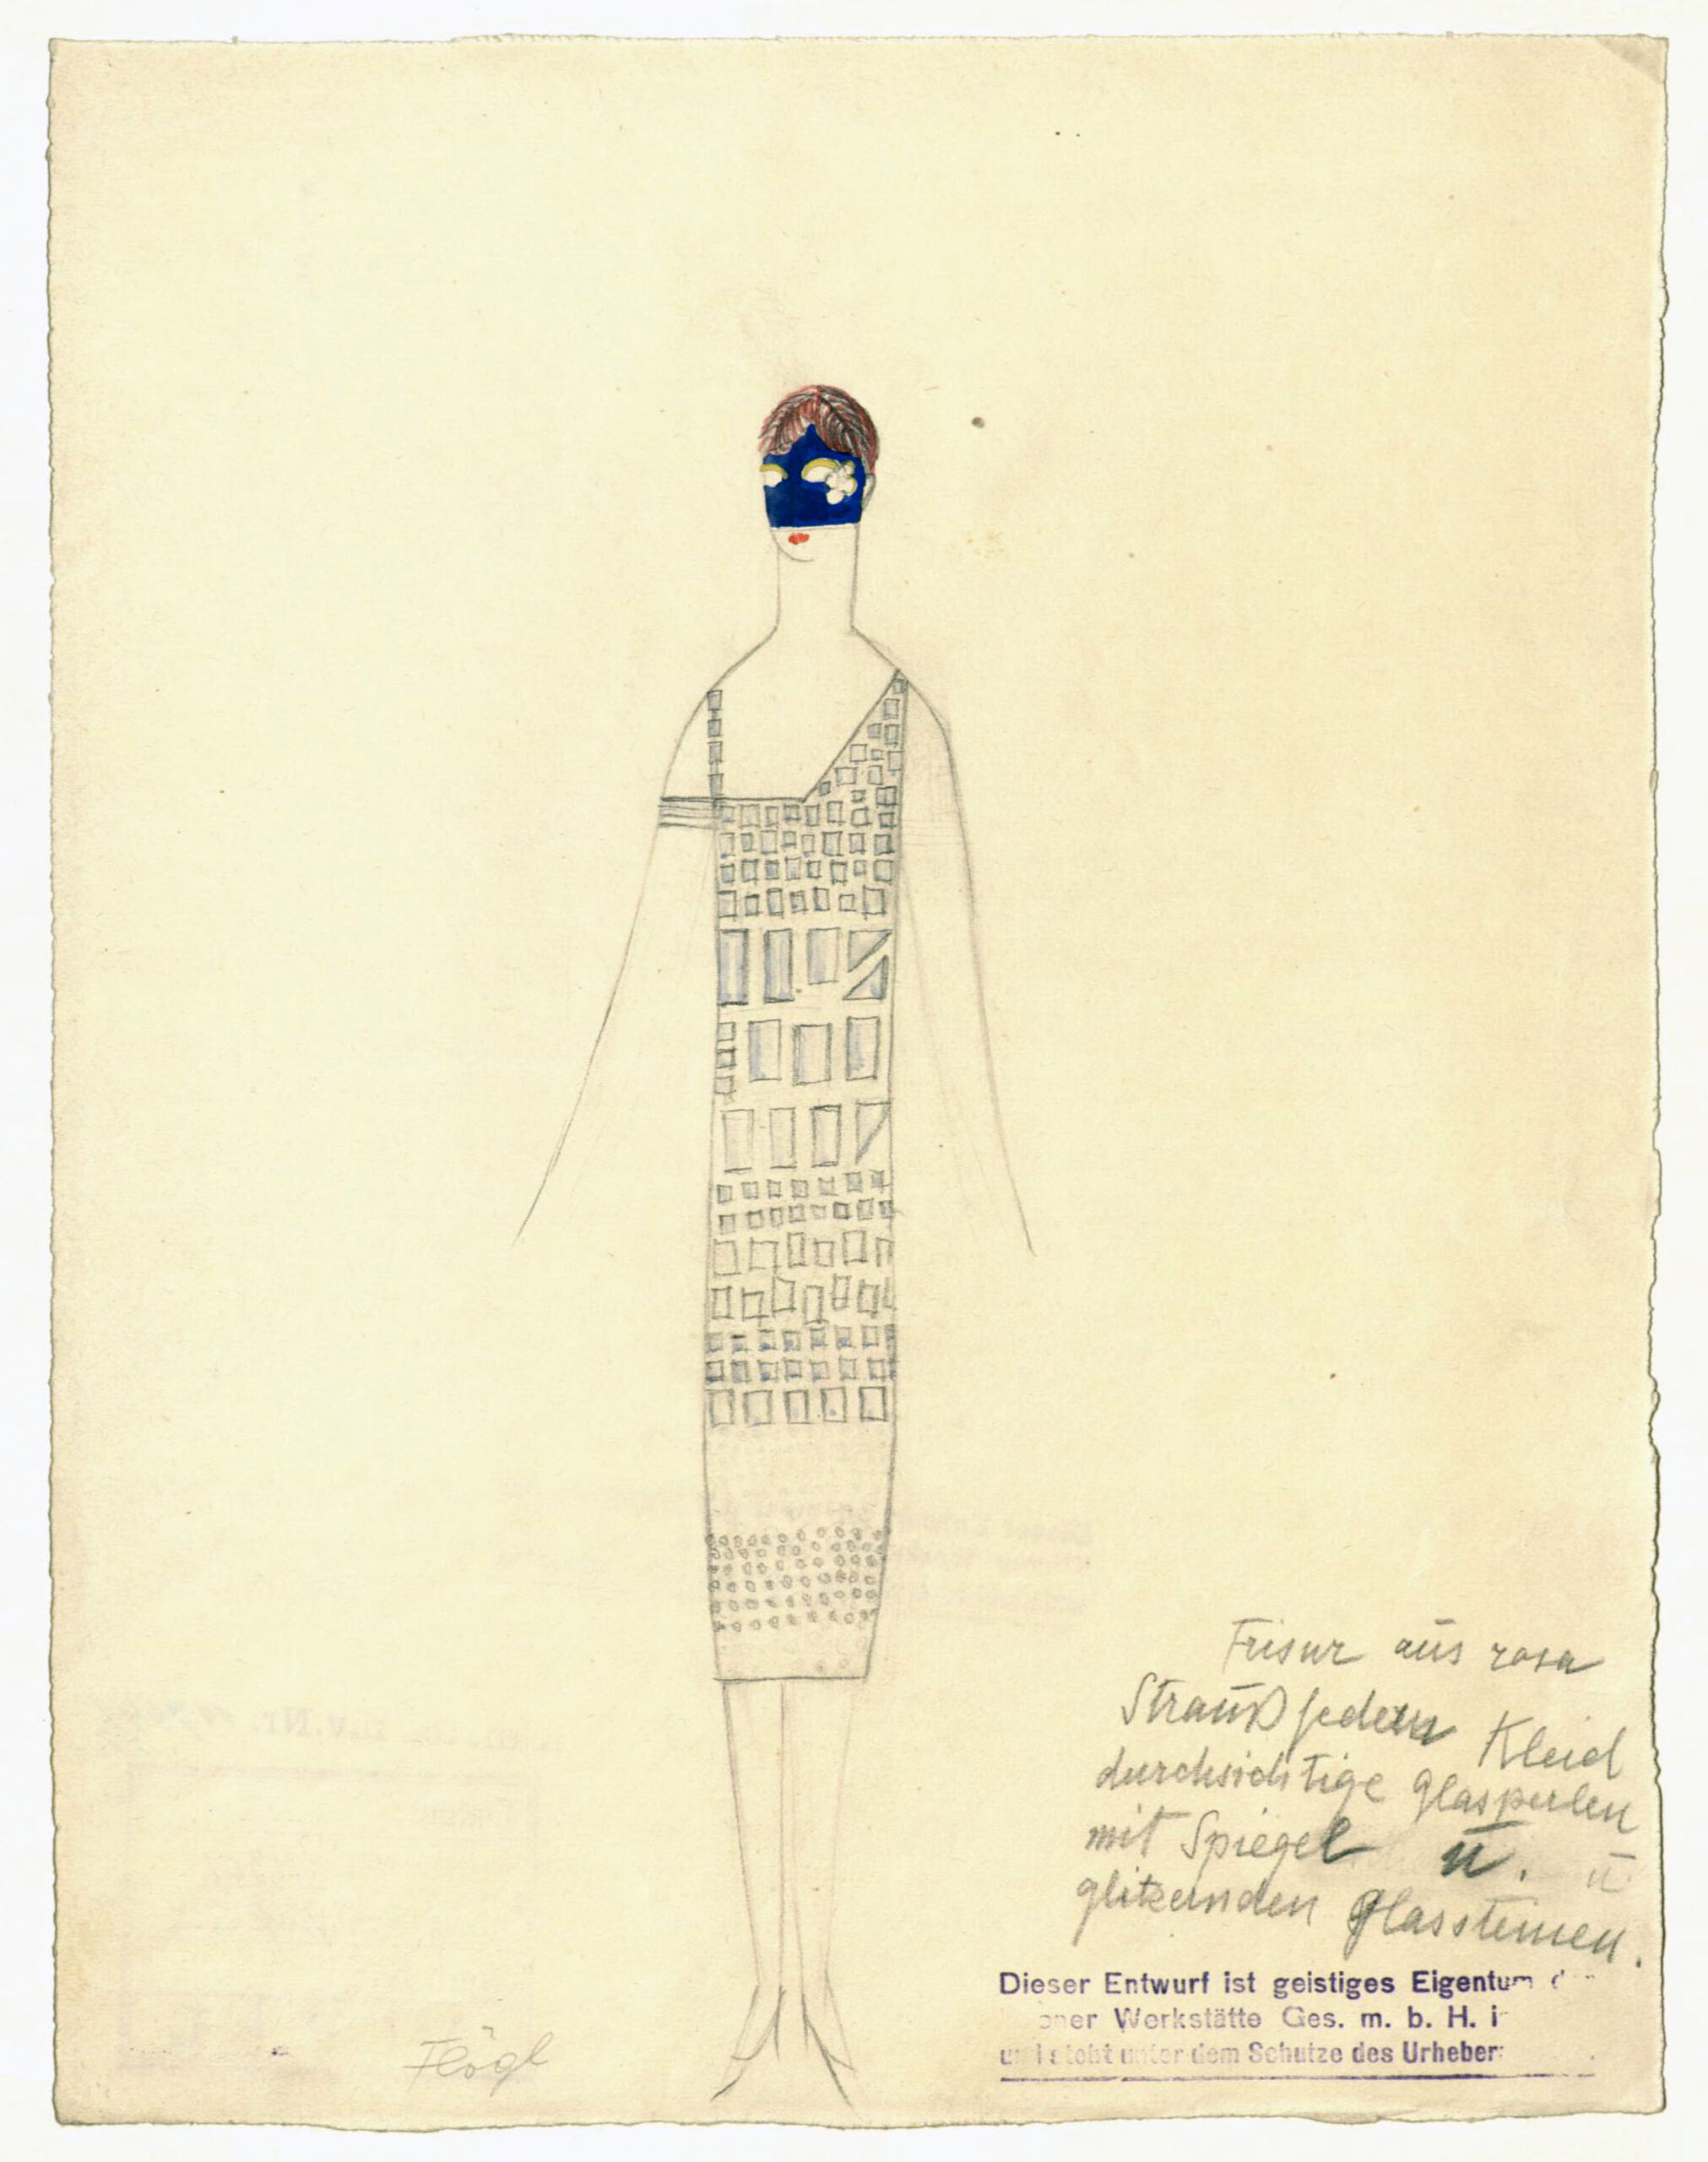 Frisur aus rosa
Straußfedern Kleid
durchsichtige Glasperlen
mit Spiegel u. u.
glitzernden Glassteinen.
Dieser Entwurf ist geistiges Eigentum
Werkstätte Ges. m. b. H.
steht unter dem Schutze des Urheber
Flögl